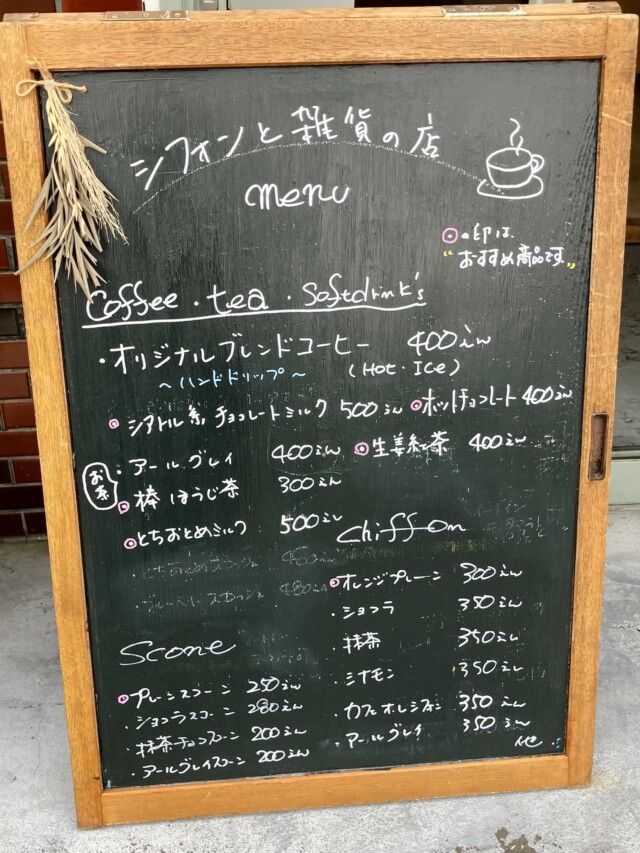 シフォンと雑貨の店
menu
◎の印は、
"おすすめ商品です"
Coffee・tea・Softdrink's
・オリジナルブレンドコーヒー 400えん
～ハンドドリップ～ (Hot・Ice)
◎シアトル系チョコレートミルク 500えん
◎ホットチョコレート 400えん
お茶
・アールグレイ 400えん
◎生姜紅茶 400えん
◎棒ほうじ茶 300えん
◎とちおとめミルク 500えん
Chiffon
◎オレンジプレーン 300えん
・ショコラ 350えん
・抹茶 350えん
・シナモン 350えん
・カフェオレシフォン 350えん
・アールグレイ 350えん
Scone
◎プレーンスコーン 250えん
・ショコラスコーン 280えん
・抹茶チョコスコーン 200えん
・アールグレイスコーン 200えん